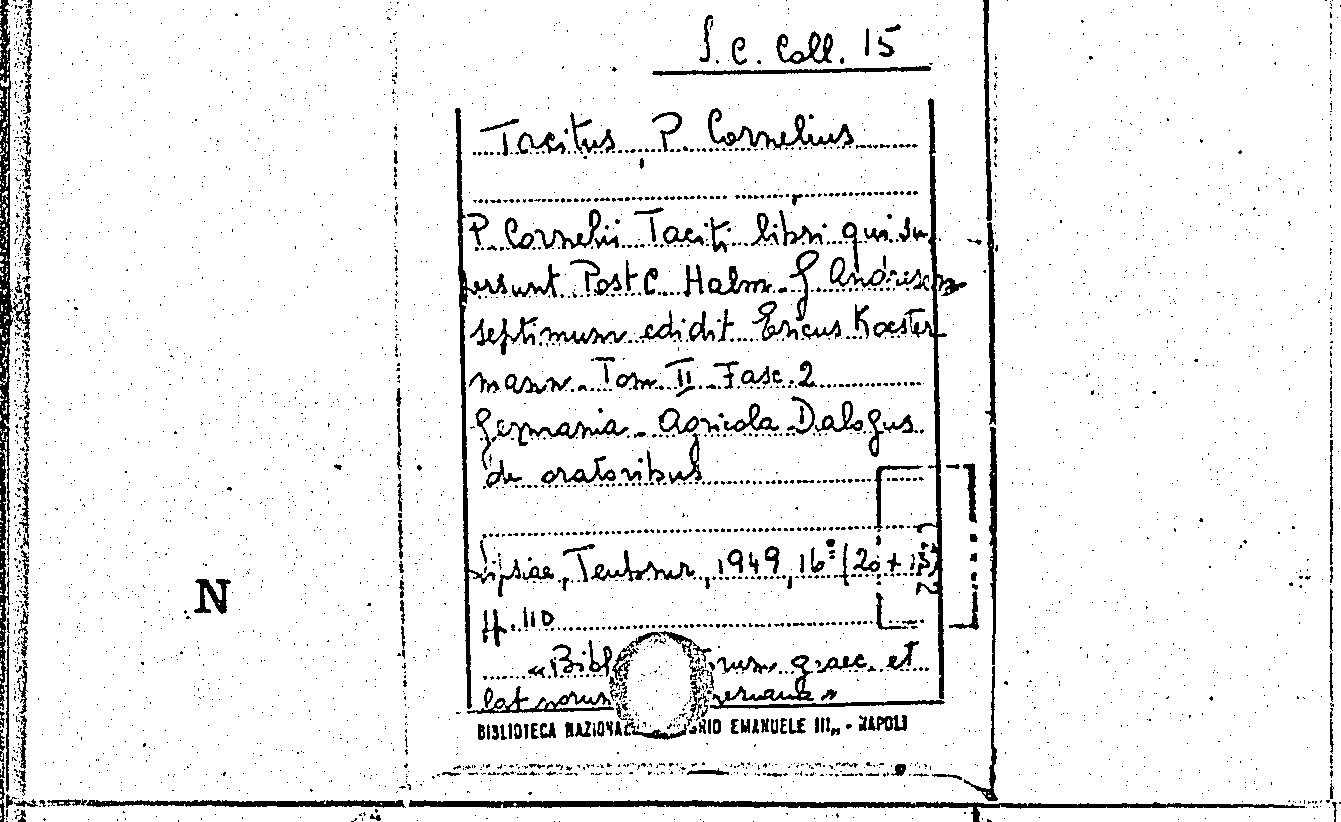 S. C. Coll. 15
Tacitus, P. Cornelius
P. Cornelii Taciti libri qui su
persunt Post C. Halm - G Andresen
septimum edidit Ericus Koester
mann. Tom II Fasc. 2
Germania - Agricola Dalogus
de oratoribus
Lipsiae, Teubner, 1949, 16° (20 +
pp. 110
N
«Bibl orum graec. et
lat norum neriana»
BIBLIOTECA NAZIONALE RIO EMANUELE III„ - NAPOLI